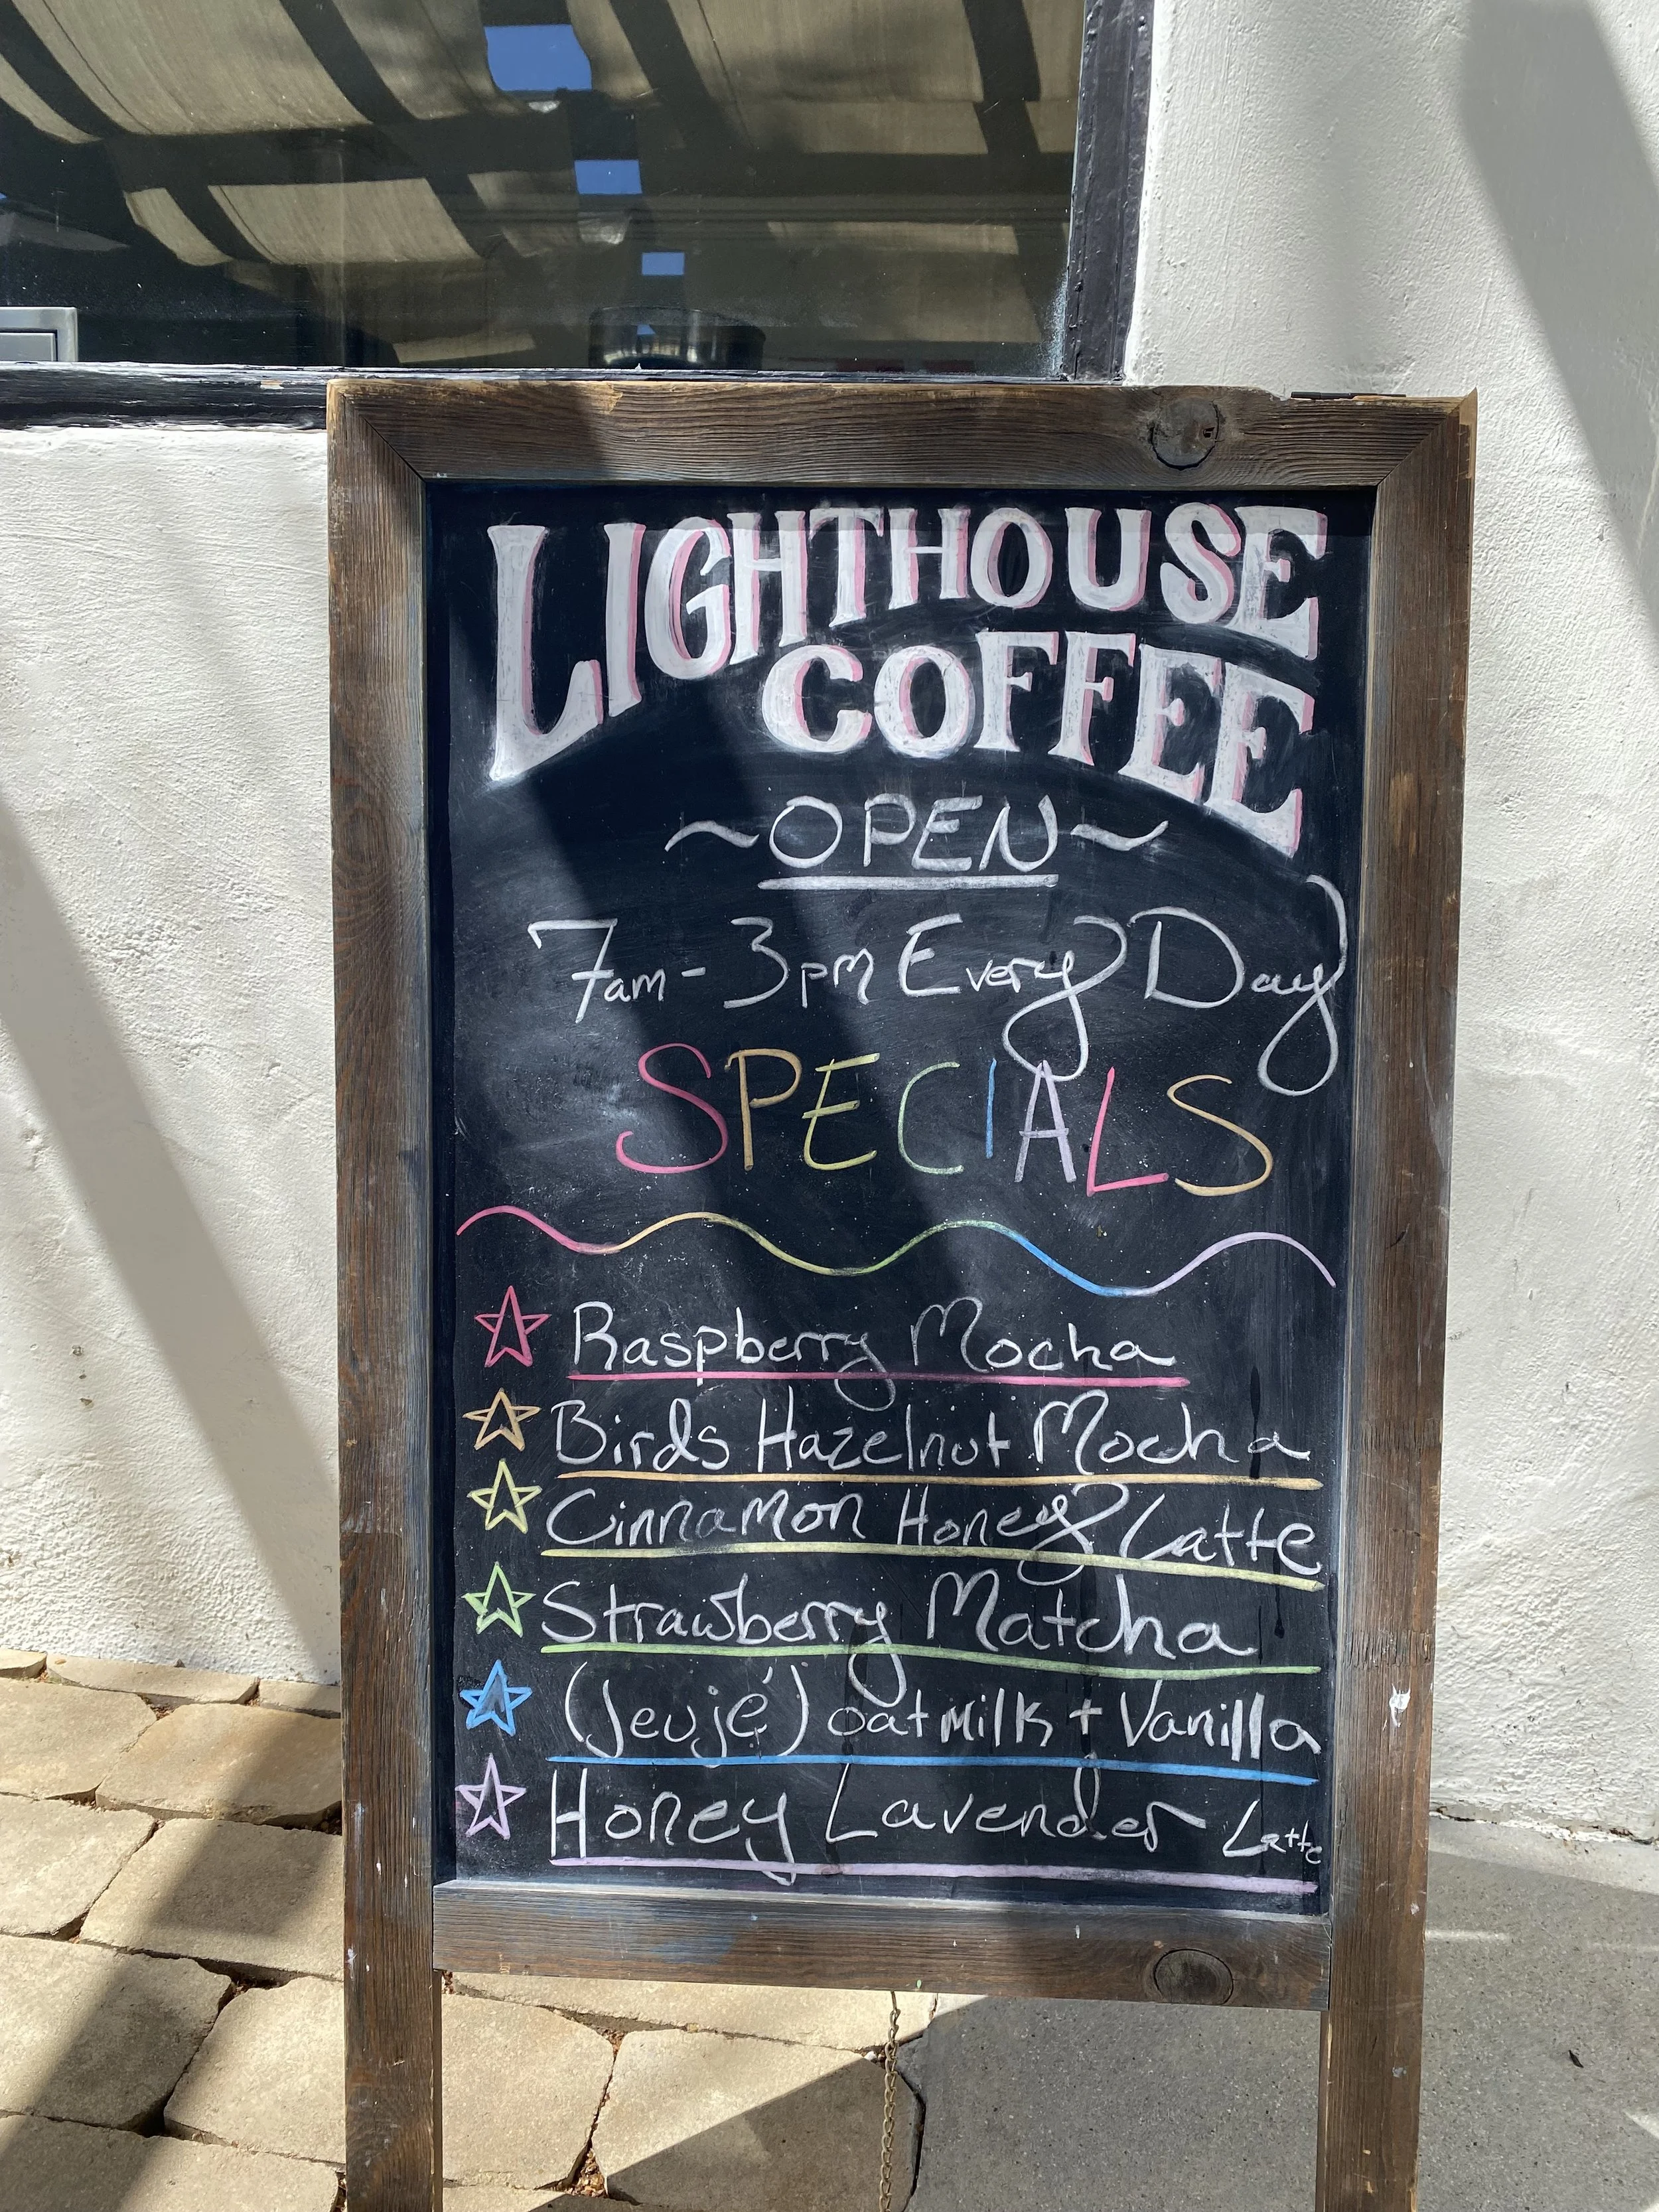 LIGHTHOUSE
COFFEE
~OPEN~
7am - 3pm Every Day
SPECIALS
Raspberry Mocha
Birds Hazelnut Mocha
Cinnamon Honey Latte
Strawberry Matcha
(Jeujé) oatmilk + Vanilla
Honey Lavender Latte